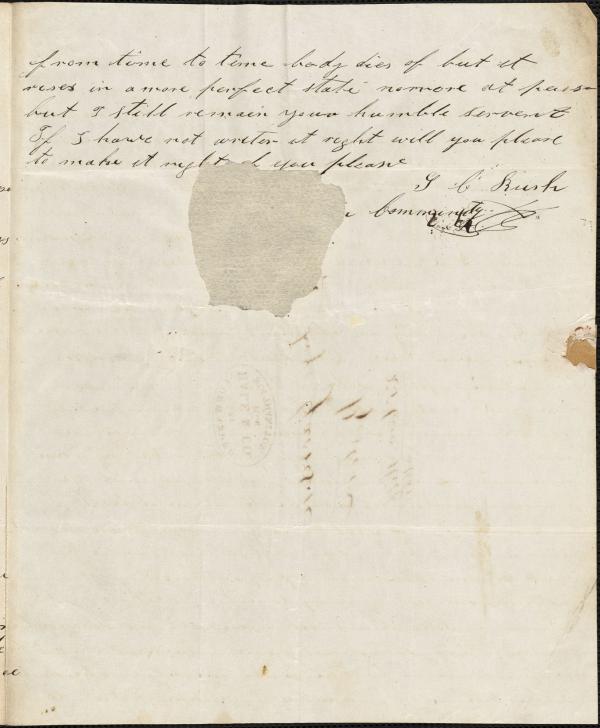 from time to time body dies of but it
rises in a more perfect state nomore at pres-
but I still remain your humble servent
If I have not writen it right will you please
to make it right if you please
I C Rush
Community